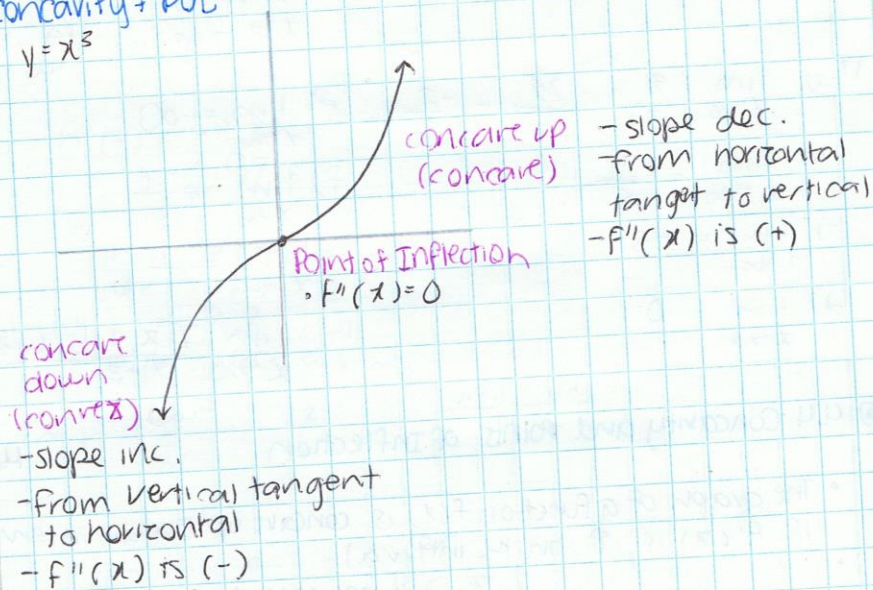 concavity + POI
y = x³
concave up
(concave)
- slope dec.
- from horizontal
tanget to vertical
- f''(x) is (+)
Point of Inflection
• f''(x) = 0
concave
down
(convex)
- slope inc.
- from vertical tangent
to horizontal
- f''(x) is (-)